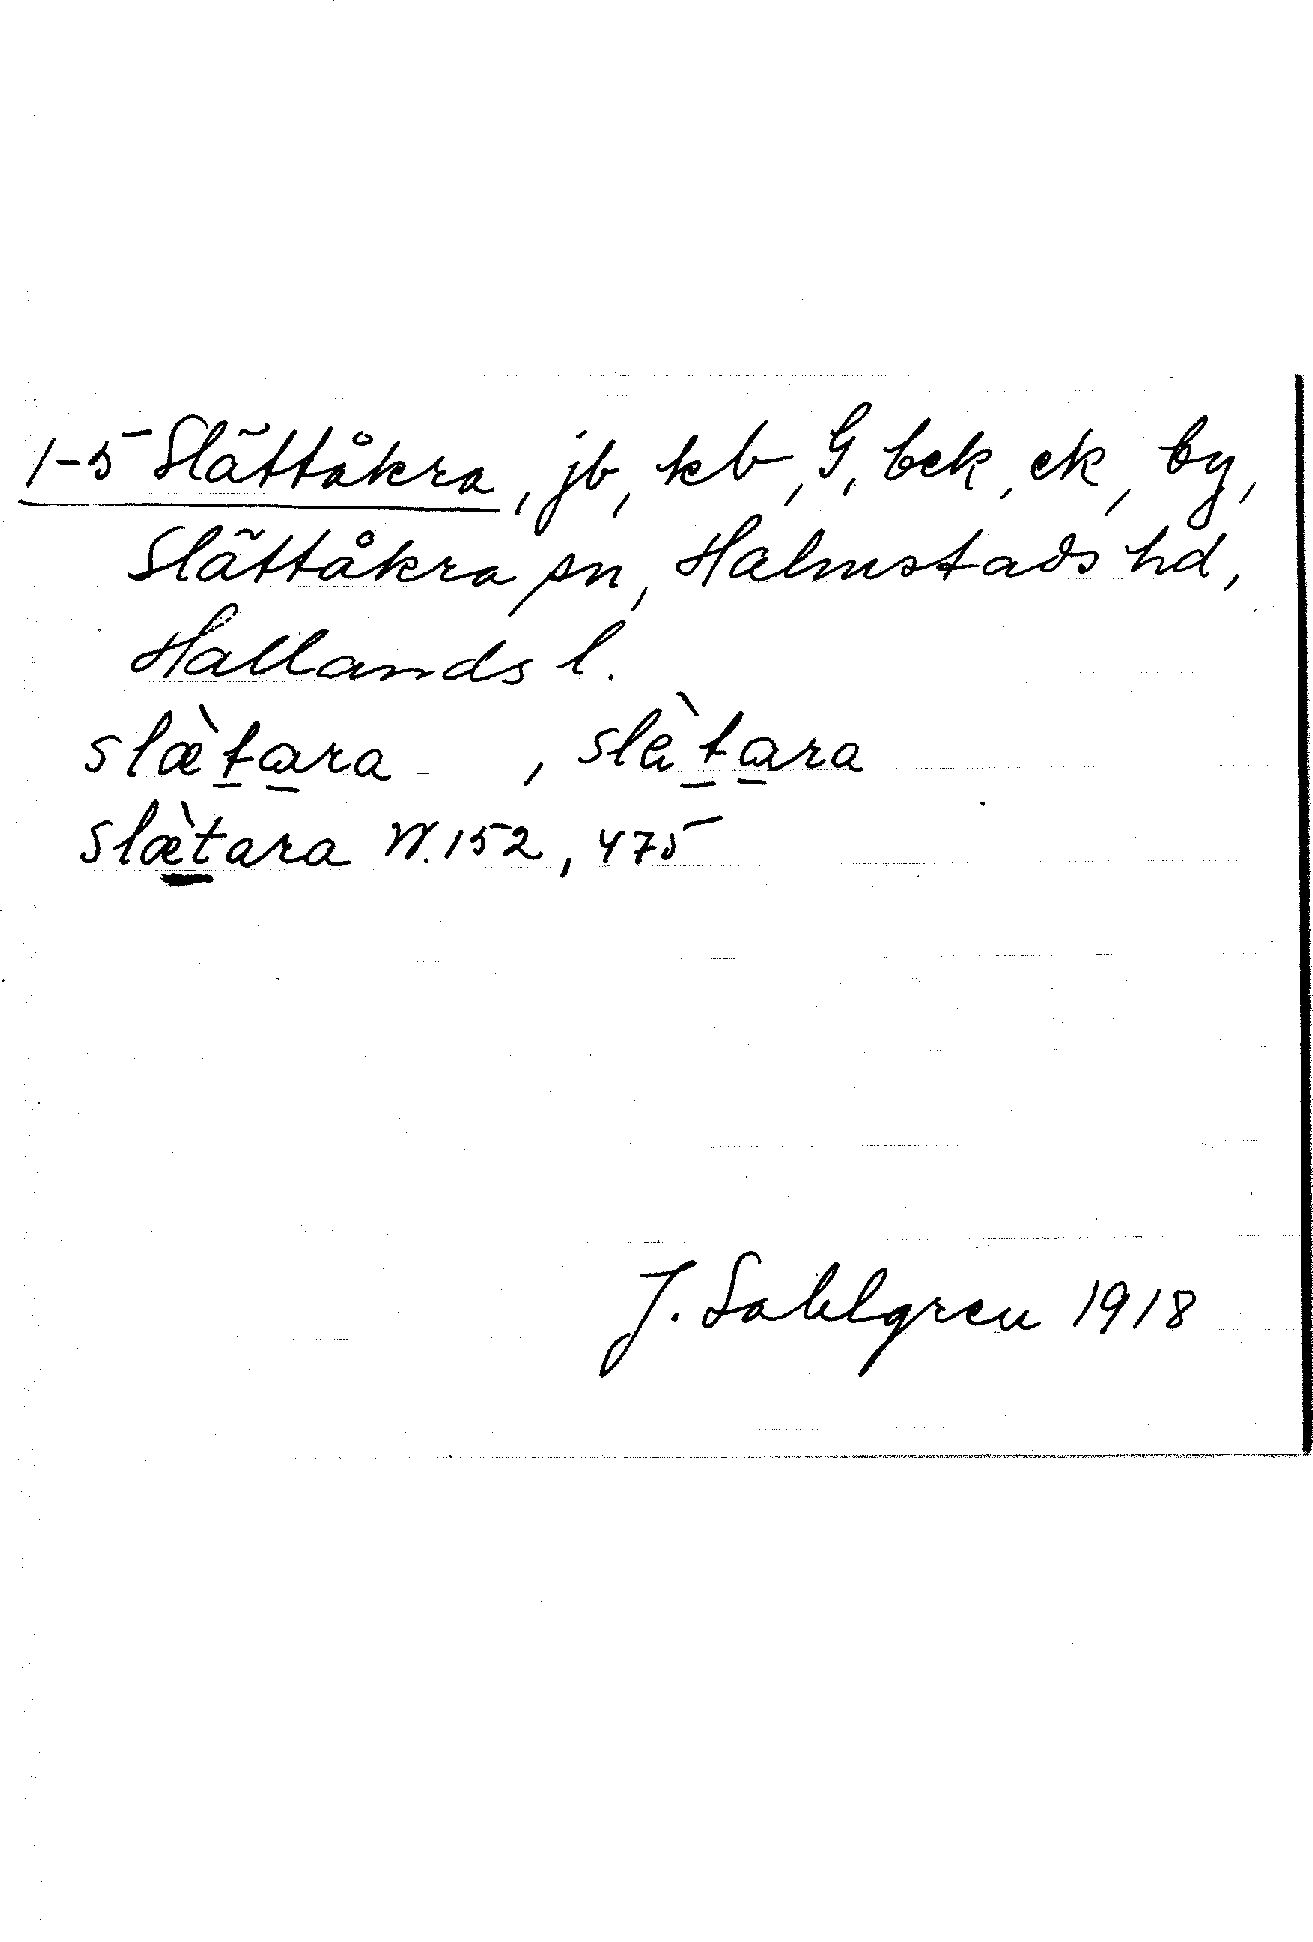 1-5 Slättåkra, jb, kb, G, bek, ek, by,
Slättåkra sn, Halmstads hd,
Hallands l.
slæ̀tara, slètara
slæ̀tara W. 152, 475
J. Sahlgren 1918